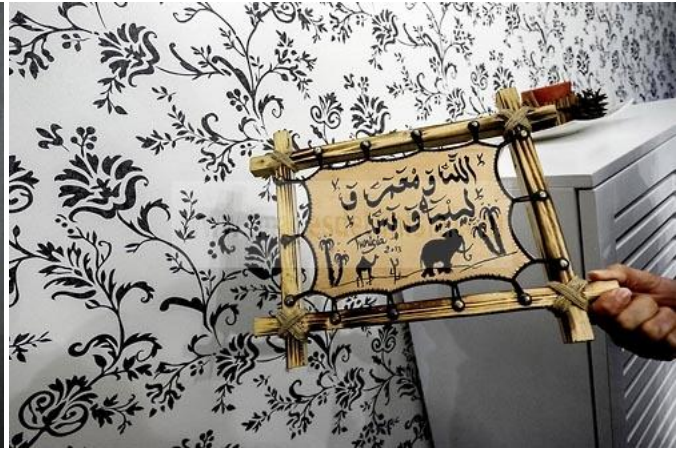 اللَّهُ وَ مُعَمَر وَ
لِيبيَه وَ بَس
Tunisia
2013